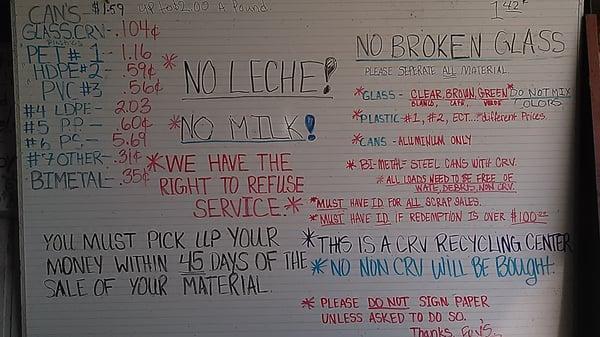 CAN'S $1.59 up to $2.00 A Pound.
GLASS CRV- .104¢
PLASTICS
PET# 1- 1.16
HDPE#2- .59¢
PVC #3 .56¢
#4 LDPE- 2.03
#5 P.P.- .60¢
#6 PS- 5.69
#7 OTHER- .31¢
BIMETAL- .35¢
* NO LECHE!
* NO MILK!
* WE HAVE THE
RIGHT TO REFUSE
SERVICE. *
YOU MUST PICK UP YOUR
MONEY WITHIN 45 DAYS OF THE
SALE OF YOUR MATERIAL.
1.42
NO BROKEN GLASS
PLEASE SEPERATE ALL MATERIAL
*GLASS- CLEAR, BROWN, GREEN *DO NOT MIX
BLANCO, CAFE, VERDE COLORS
*PLASTIC- #1, #2, ECT.. *different Prices.
*CANS - ALUMINUM ONLY
* BI-METAL= STEEL CANS WITH CRV.
*ALL LOADS NEED TO BE FREE OF
WATE, DEBRIS, NON CRV.
*MUST HAVE ID FOR ALL SCRAP SALES.
*MUST HAVE ID IF REDEMPTION IS OVER $100.00
*THIS IS A CRV RECYCLING CENTER
*NO NON CRV WILL BE BOUGHT.
* PLEASE DO NOT SIGN PAPER
UNLESS ASKED TO DO SO. *
Thanks,